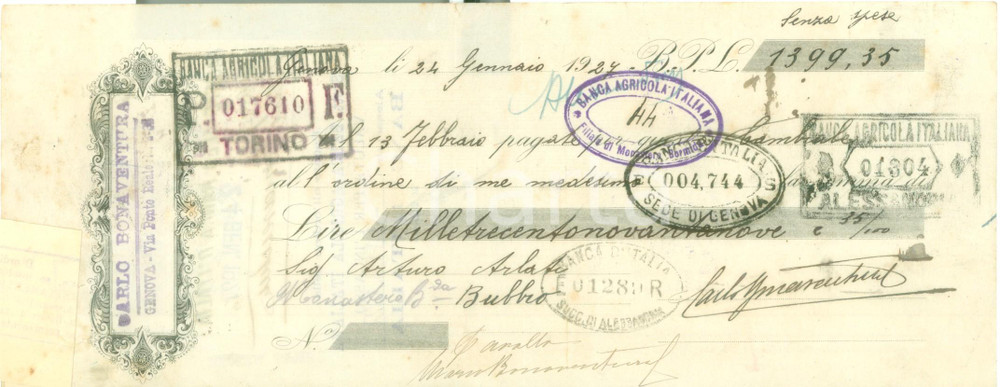 Senza spese
Genova li 24 Gennaio 1927 B.P.L. 1399,35
Al 13 Febbraio pagate per questa Cambiale
all'ordine di me medesimo la somma di
Lire Milletrecentonovantanove e 35/100
Sig Arturo Arlati
Monastero B.da Bubbio
N.
Avallo
CARLO BONAVENTURA
GENOVA - Via Ponte
BANCA AGRICOLA ITALIANA
P. 017610 F.
TORINO
BANCA AGRICOLA ITALIANA
44
Filiale di
BANCA D'ITALIA
004,744 S
SEDE DI GENOVA
BANCA AGRICOLA ITALIANA
01304
ALESSANDRIA
BANCA D'ITALIA
E 01280 R
SUCC. DI ALESSANDRIA